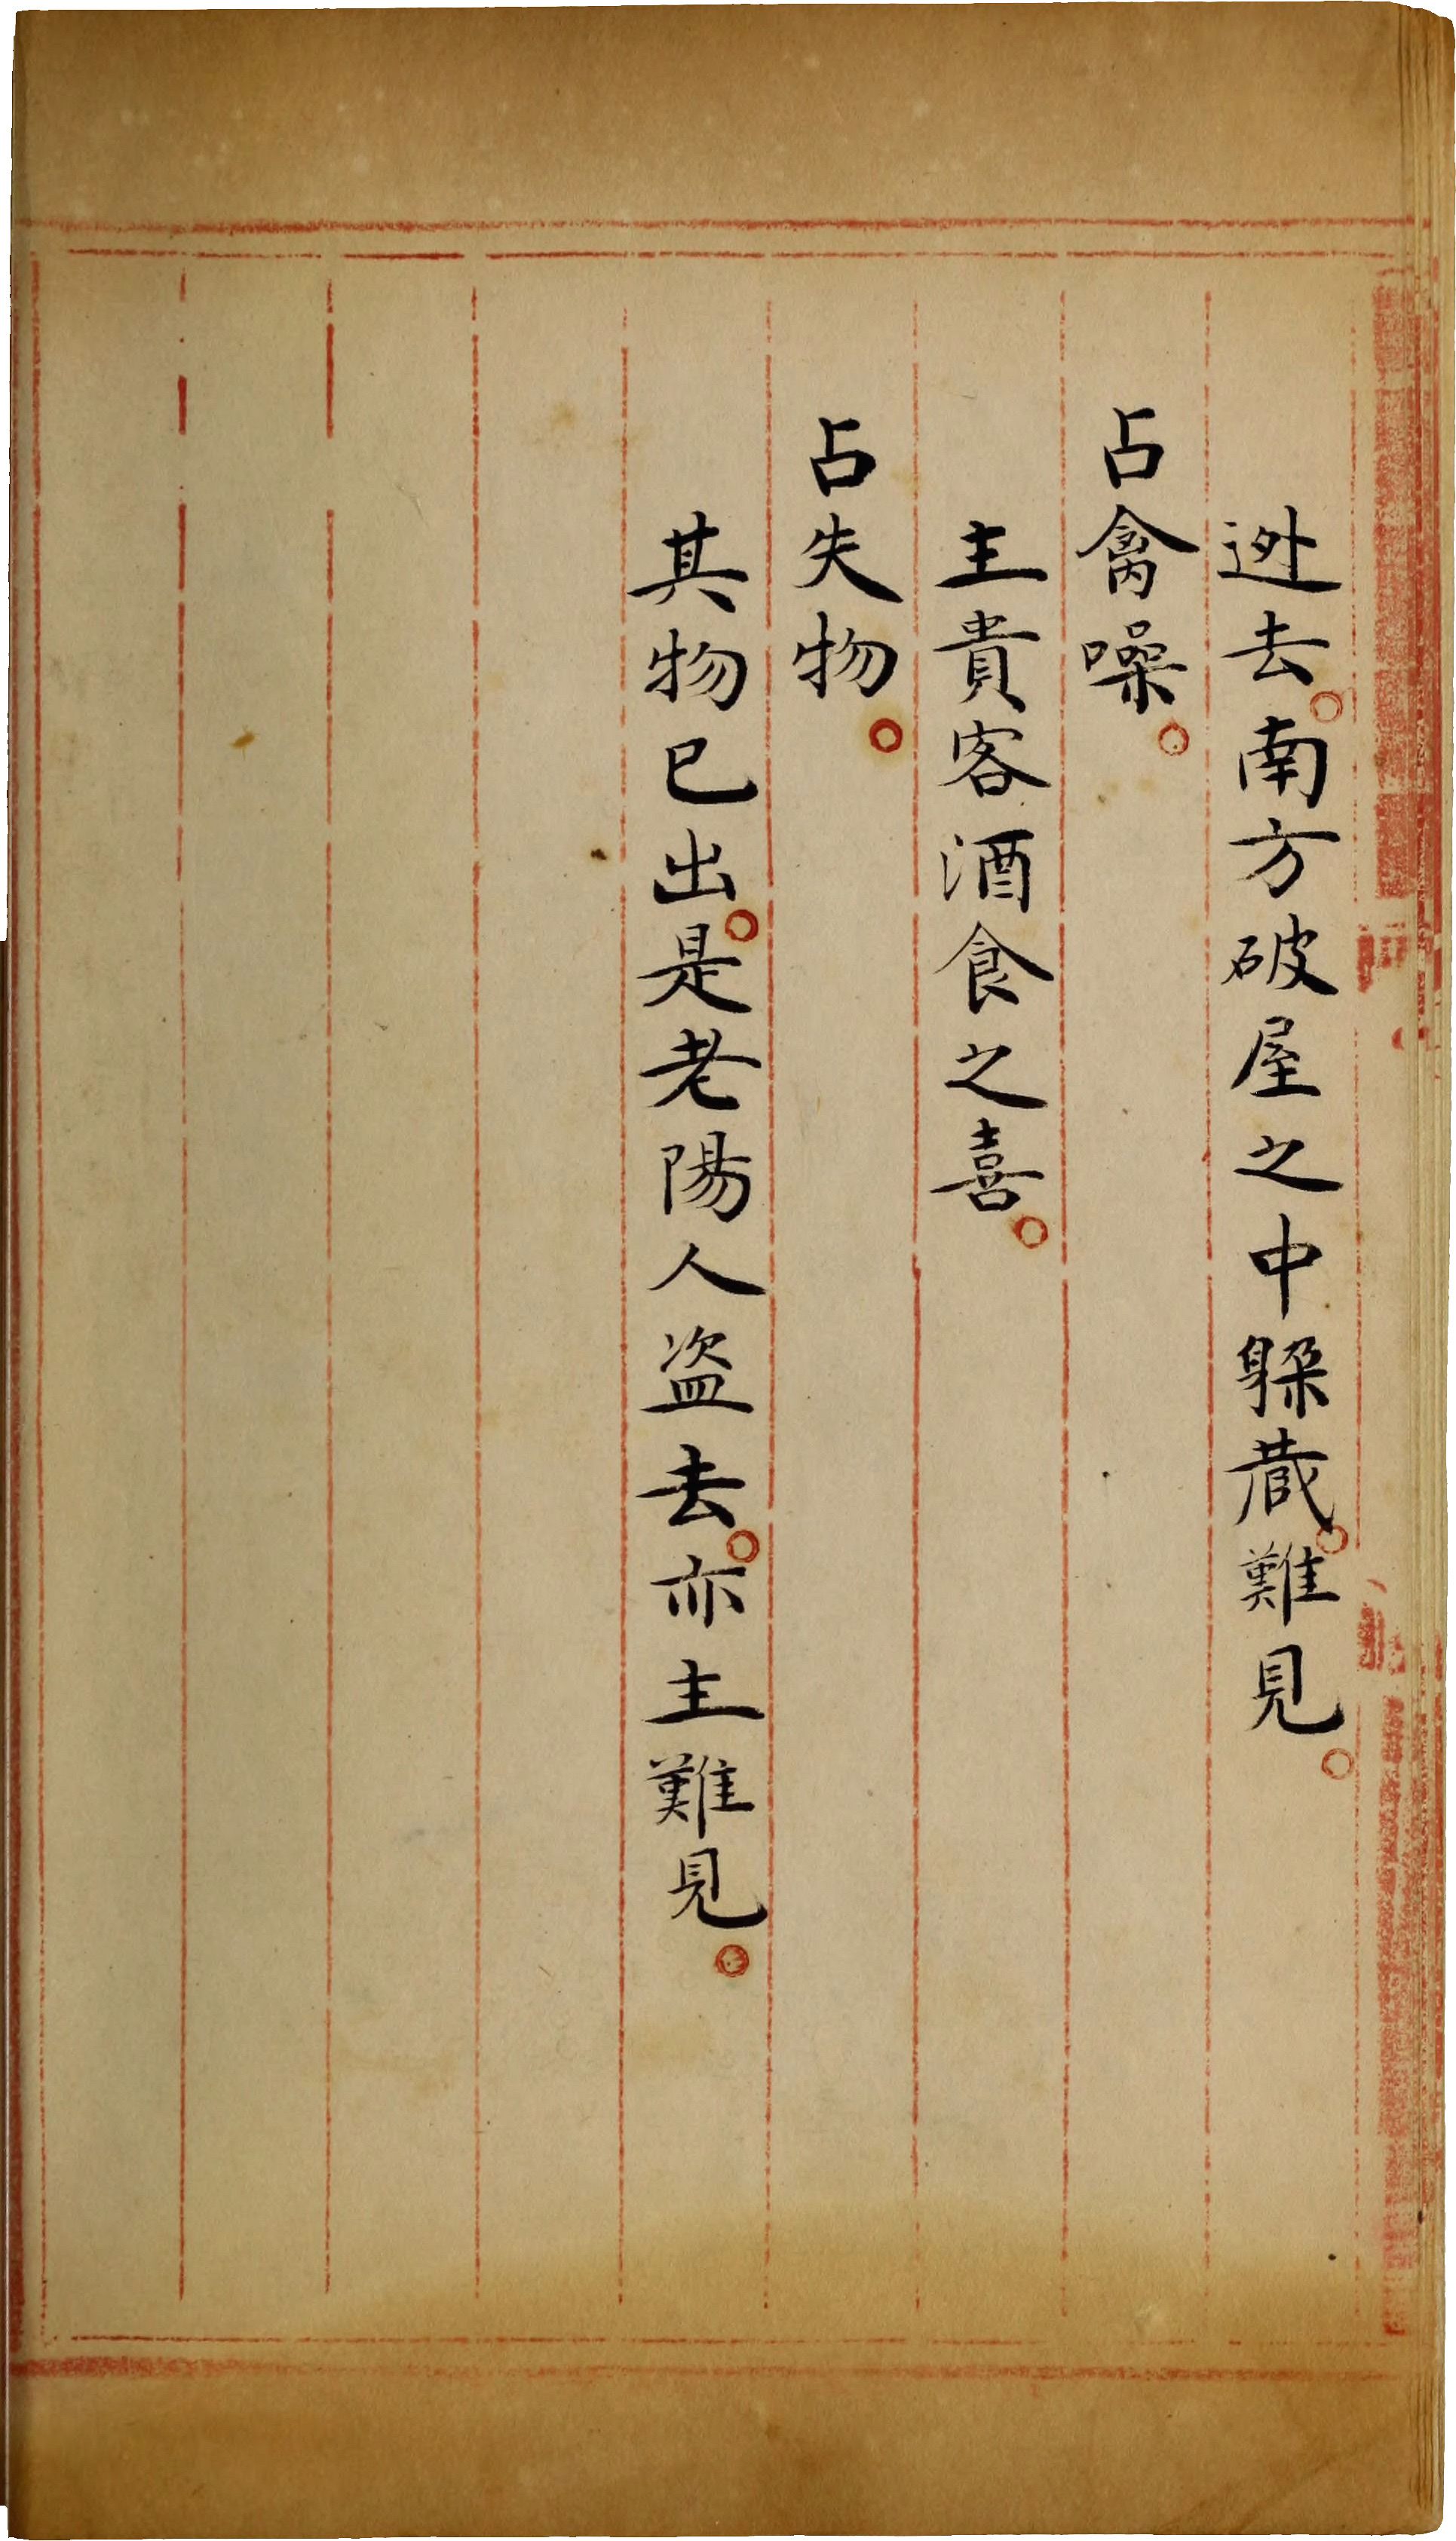 迯去。南方破屋之中躲蔵。難見。
占禽噪。
主貴客酒食之喜。
占失物。
其物已出。是老陽人盗去。亦主難見。